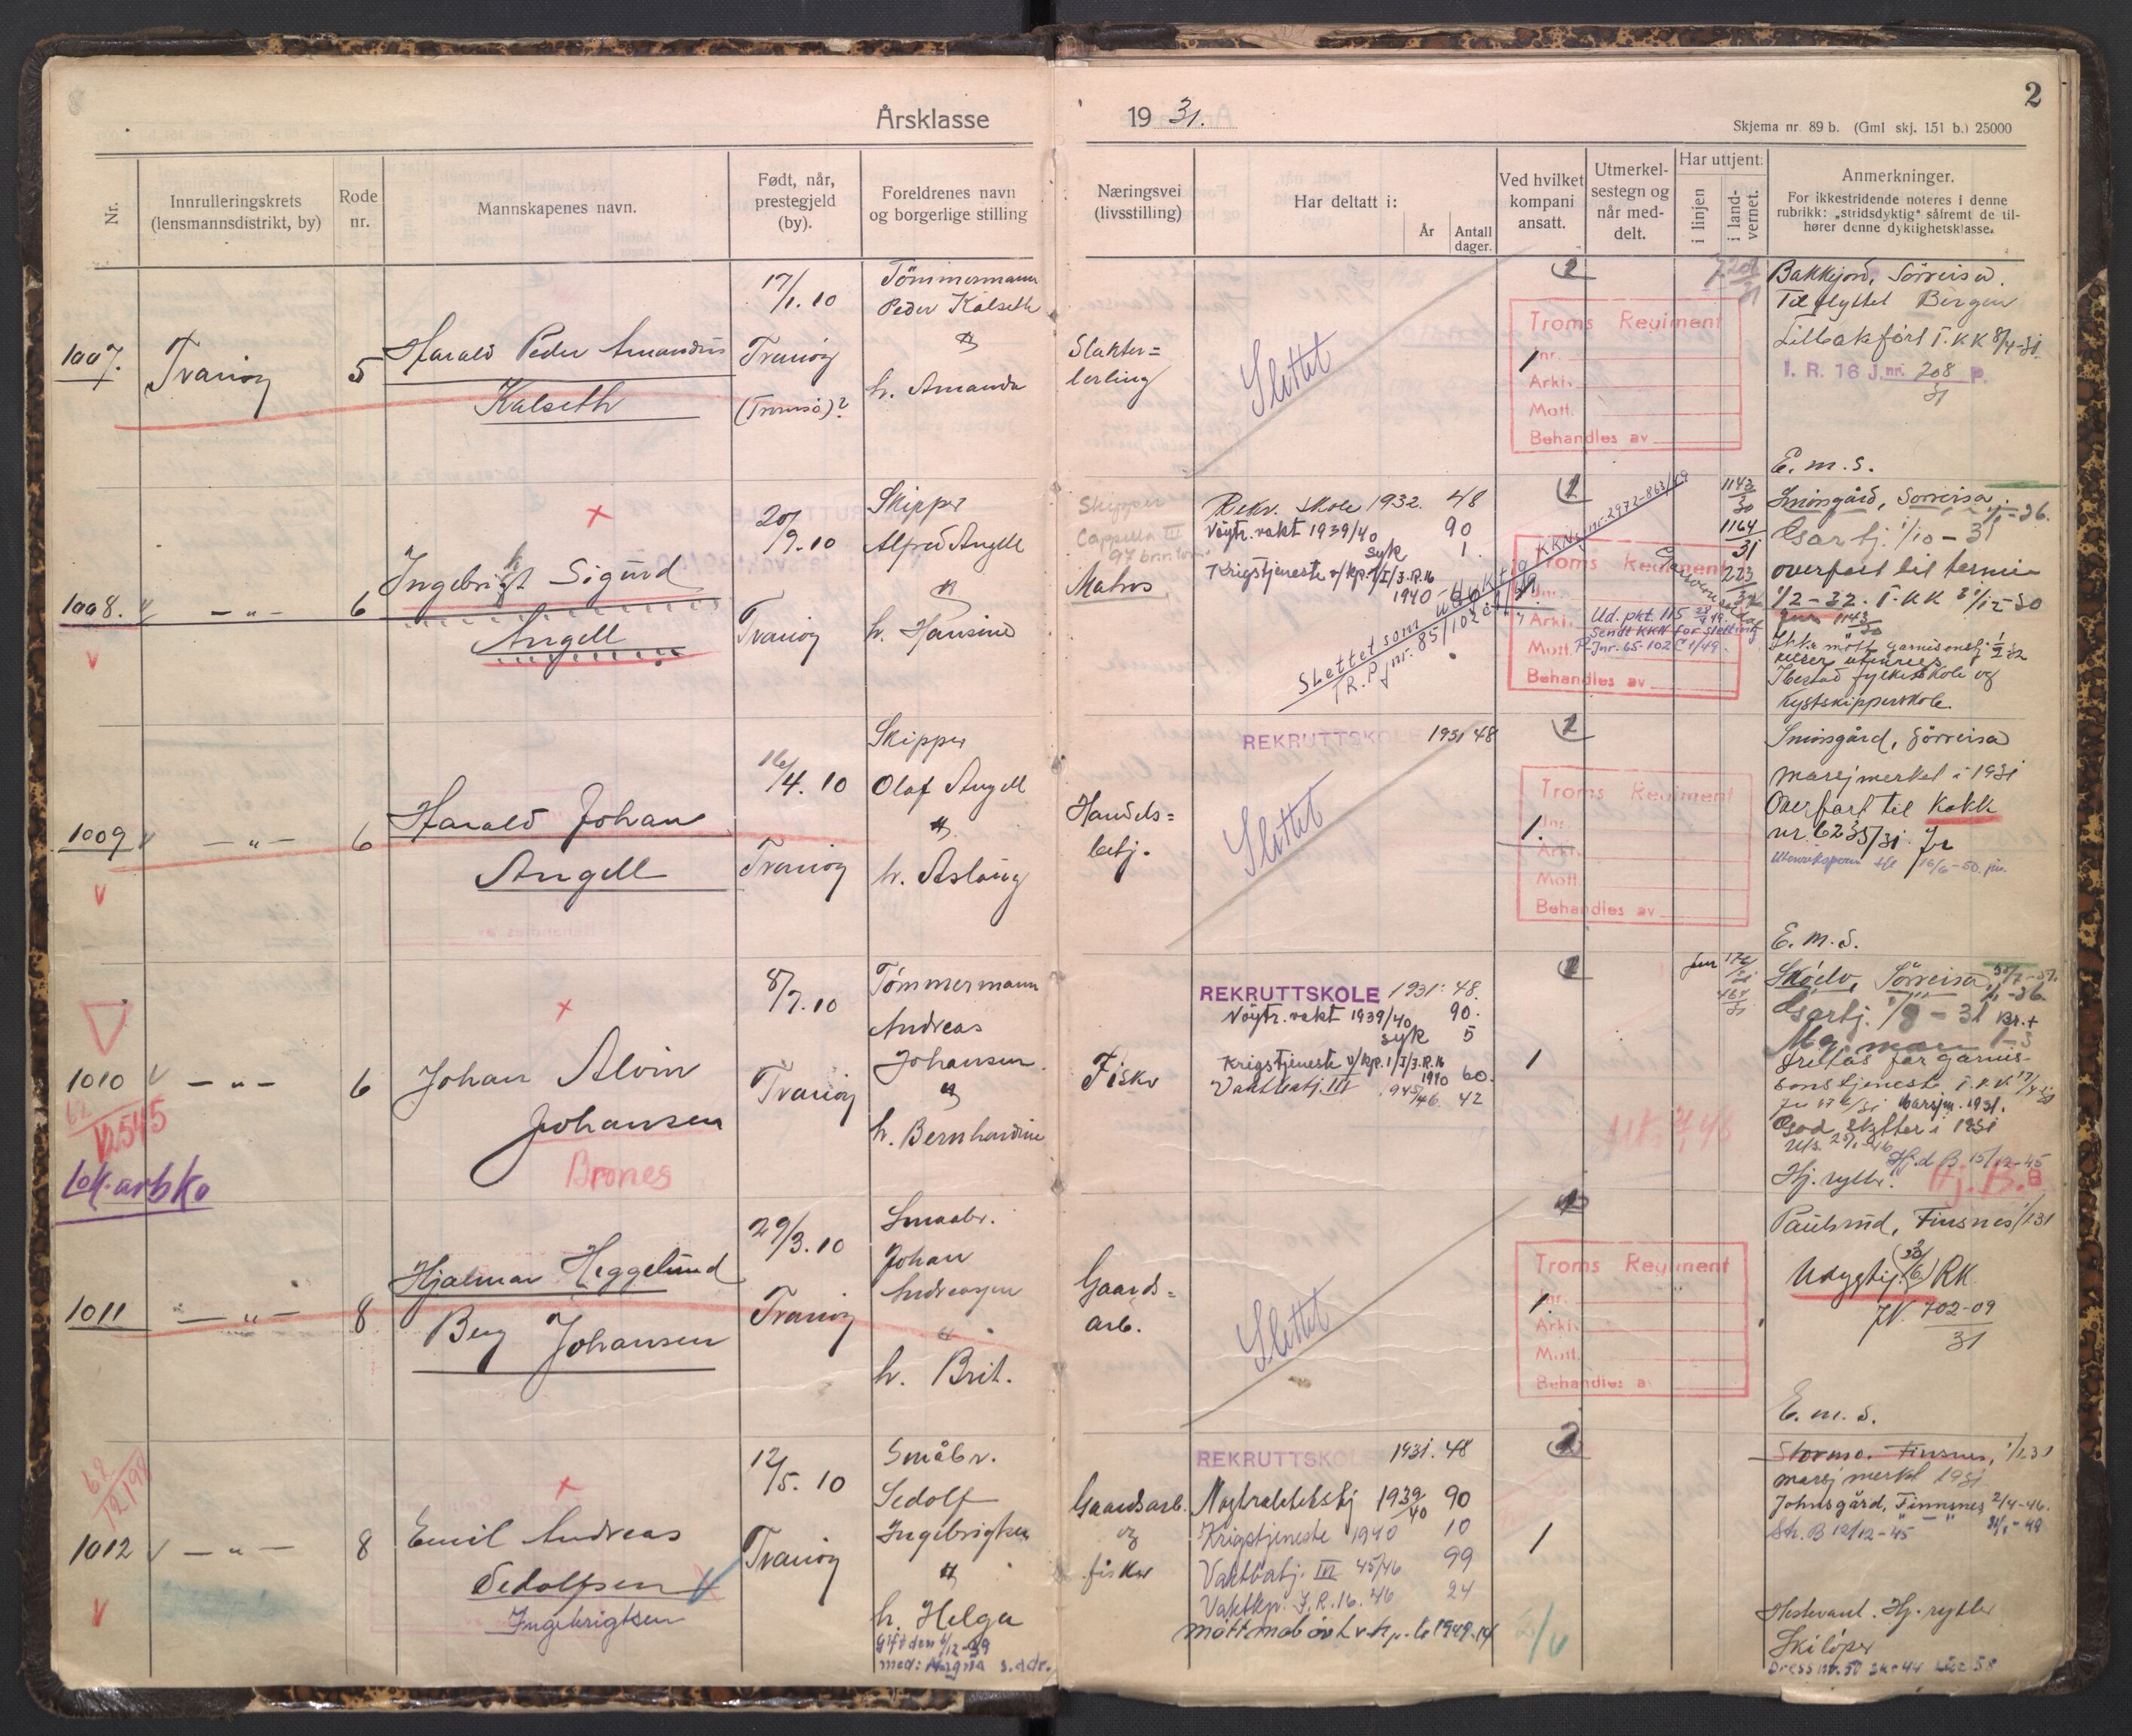 Årsklasse
19 31.
2
Skjema nr. 89 b. (Gml skj. 151 b.) 25000
Nr.
Innrulleringskrets
(lensmannsdistrikt, by)
Rode
nr.
Mannskapenes navn.
Født, når,
prestegjeld
(by).
Foreldrenes navn
og borgerlige stilling
Næringsvei
(livsstilling)
Har deltatt i:
År
Antall
dager.
Ved hvilket
kompani
ansatt.
Utmerkel-
sestegn og
når med-
delt.
Har uttjent:
i linjen
i land-
vernet.
Anmerkninger.
For ikkestridende noteres i denne
rubrikk: „stridsdyktig“ såfremt de til-
hører denne dyktighetsklasse.
1007.
Tranøy
5
Harald Peder Amandus
Kalseth
17/1.10
Tranøy
(Tromsø)?
Tömmermann
Peder Kalseth
h. Amanda
Slakter=
lerling
Slettet
1
Troms Regiment
Jnr.
Arkiv
Mott.
Behandles av
Bakkejord, Sörreisa.
Tilflyttet Bergen
Tilbakeført T.KK 8/4-31.
I. R. 16 J.nr. 208 P.
31
1008.
— „ —
6
Ingebrigt Sigurd
Angell
20/9.10
Tranøy
Skipper
Alfred Angell
h. Hansine
Skipper
Cappella III
Matros
Rekr. skole 1932. 48
Nöytr. vakt 1939/40 90
syk 1.
Krigstjeneste v/kp. 1/I/J.R.16
1940
Slettet som udyktig
KKNj.nr. 2972-863/49
T.R.P.jnr. 85/102
Troms Regiment
Arkiv
Ud. pkt. 115
Sendt KKN for sletting
P.Jnr. 65-102 C 1/49.
Mott.
Behandles av
1143
30
1164
31
223
E.m.S.
Smörsgård, Sörreisa
1/1-36.
Gsarbj. 1/10-31
overført til termin
1/2-32. T.KK 31/12-30
1143
30
Ikke mött garnisonstj.
reiser utenriks
Ibestad fylkesskole og
Kystskipperskole.
1009
— „ —
6
Harald Johan
Angell
16/4.10
Tranøy
Skipper
Olaf Angell
h. Aslaug
Handels=
betj.
REKRUTTSKOLE 1931 48
Slettet
1.
Troms Regiment
Jnr.
Arkiv
Mott.
Behandles av
Smörsgård, Sörreisa
Marsjmerket i 1931
Overført til Kokk
nr. 6235/31. Jr
16/6-50.
1010
— „ —
6
12545
Lok. arbko
Johan Alvin
Johansen
Brones
8/7.10
Tranøy
Tömmermann
Andreas
Johansen
h. Bernhardine
Fisker
REKRUTTSKOLE 1931. 48.
Nöytr. vakt 1939/40 90.
syk 5
Krigstjeneste v/kp. 1/I/J.R.16
1940 60.
Vaktbatj. III 1945/46. 42
1
E.M.S.
Skøelv, Sörreisa
1/1-36.
Gsarbj. 1/9-31
Mg. man
Frittas for garni-
sonstjeneste
Marsjm. 1931.
God skytter i 1931
Hj. d B 15/12-45
Hj. rytter.
Hj. B.
1011
— „ —
8
Hjalmar Heggelund
Berg Johansen
29/3.10
Tranøy
Smaabr.
Johan
Andreassen
h. Brit.
Gaards=
arb.
Slettet
1.
Troms Regiment
Jnr.
Arkiv
Mott.
Behandles a
Paulsrud, Finsnes 1/1.31
Udygtig RK
JN. 702-09
31
1012
— „ —
8
Emil Andreas
Sedolfsen
Ingebrigtsen
12/5.10
Tranøy
Småbr.
Sedolf
Ingebrigtsen
h. Helga
Gift den 4/12-39
med: Magna s. adr.
Gaardsarb.
og
fisker
REKRUTTSKOLE 1931. 48
Nøytralitetstj 1939/40 90
Krigstjeneste 1940 10
Vaktbatj. III 45/46 99
Vaktkp. J.R.16. 46 24
1
E.m.S.
Stormo. Finsnes, 1/1.31
marsjmerket 1931
Johnsgård, Finnsnes 2/4-46.
Str. B 12/12-45
Hestevant. Hj. rytter
Skilöper
Dress nr. 50 sko 44